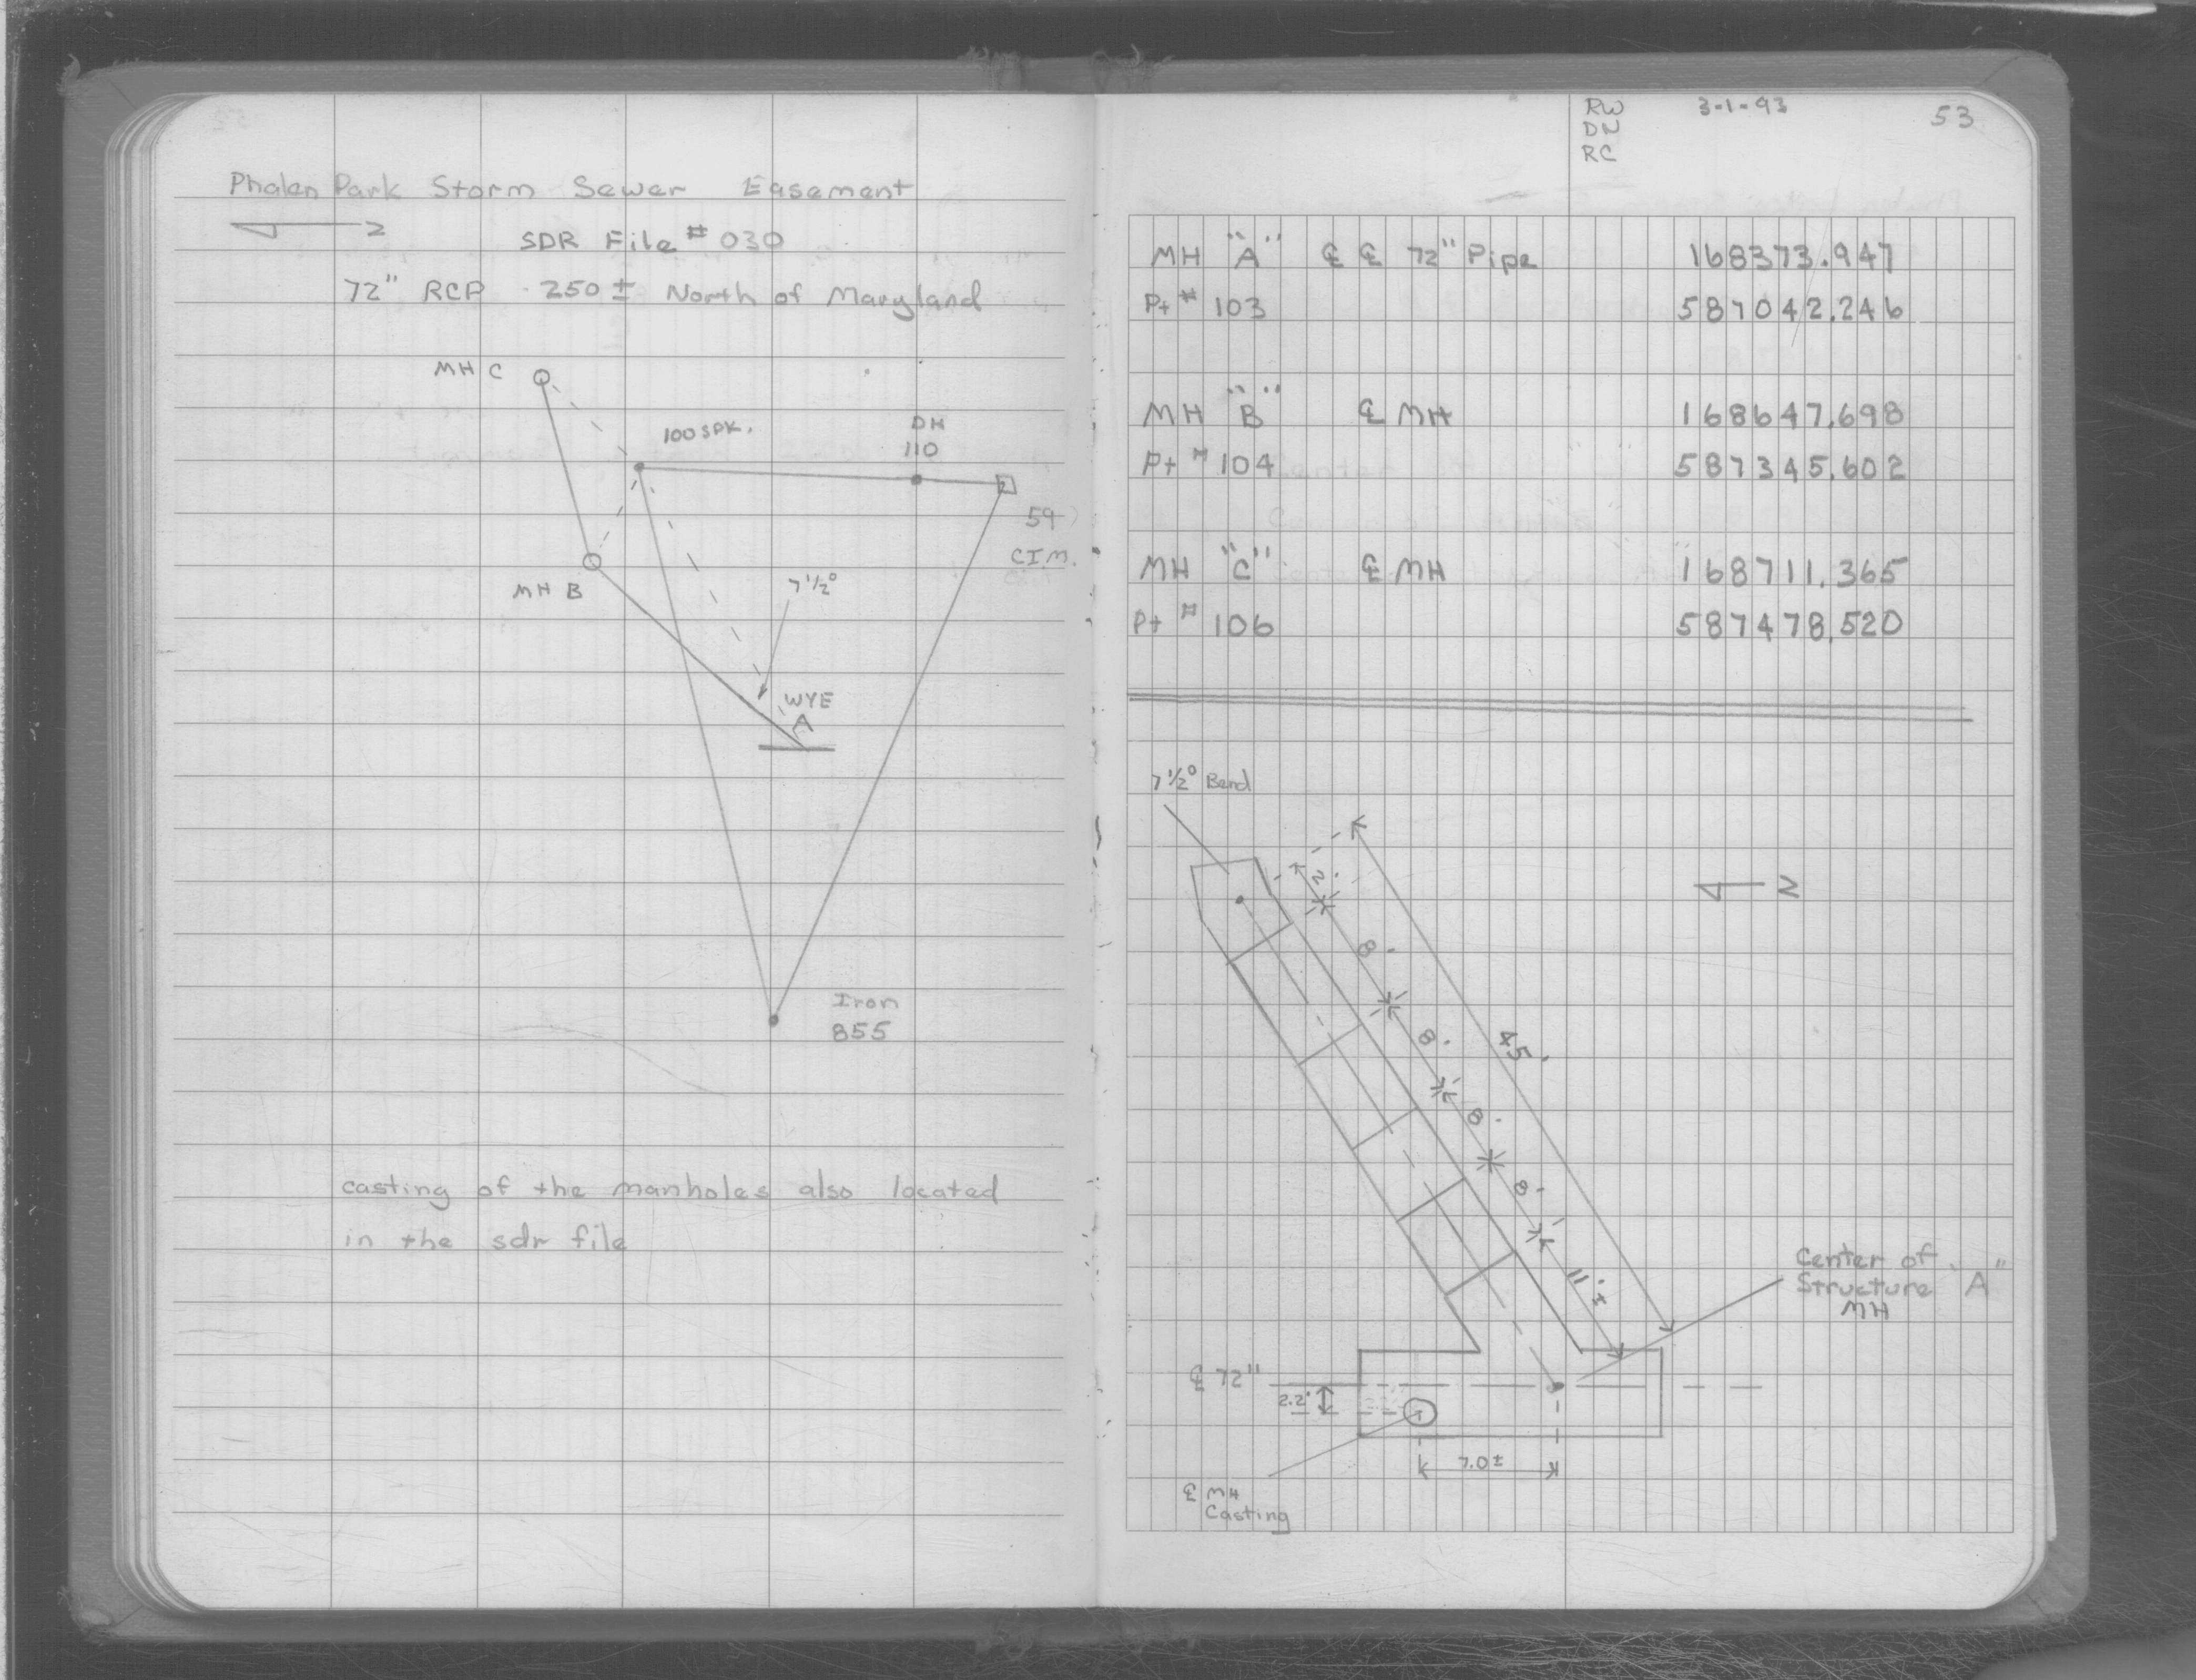 Phalen Park Storm Sewer Easement
N
SDR File # 030
72" RCP 250 ± North of Maryland
MH C
100 SPK.
DH
110
59
C.I.M.
MH B
7 1/2°
WYE
A
Iron
855
casting of the manholes also located
in the sdr file
RW 3-1-93 53
DN
RC
MH "A" ℄ ℄ 72" Pipe 168373.947
Pt # 103 587042.246
MH "B" ℄ MH 168647.698
Pt # 104 587345.602
MH "C" ℄ MH 168711.365
Pt # 106 587478.520
7 1/2° Bend
2'
N
8'
8'
45'
8'
8'
11'±
Center of
Structure "A"
MH
℄ 72"
2.2'
7.0±
℄ MH
Casting